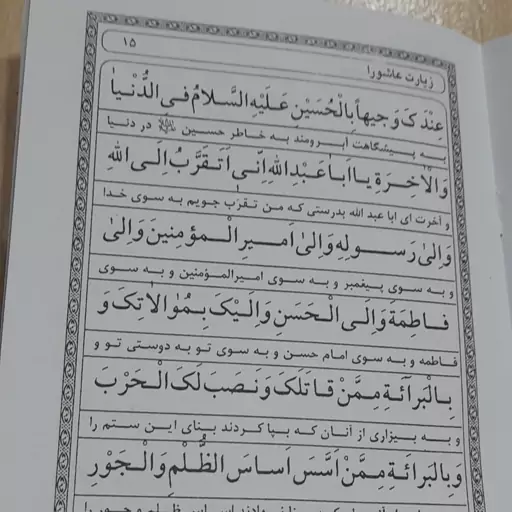 زیارت عاشورا ۱۵
عِنْدَکَ وَجیهاً بِالْحُسَیْنِ عَلَیْهِ السَّلامُ فِی الدُّنْیاٰ
به پیشگاهت آبرومند به خاطر حسین ﷺ در دنیا
وَالْاٰخِرَةِ یٰا اَبٰا عَبْدِاللهِ اِنّی اَتَقَرَّبُ اِلَی اللهِ
و آخرت ای ابا عبد الله بدرستی که من تقرب جویم به سوی خدا
وَاِلیٰ رَسُولِهِ وَاِلیٰ اَمیرِ الْمؤمِنینَ وَاِلیٰ
و به سوی پیغمبر و به سوی امیرالمؤمنین و به سوی
فاطِمَةَ وَاِلَی الْحَسَنِ وَاِلَیْکَ بِمُوٰالاتِکَ وَ
فاطمه و به سوی امام حسن و به سوی تو به دوستی تو و
بِالْبَرائَةِ مِمَّنْ قاتَلَکَ وَنَصَبَ لَکَ الْحَرْبَ
و به بیزاری از آنان که بپا کردند بنای این ستم را
وَبِالبَرائَةِ مِمَّنْ اَسَّسَ اَساسَ الظُّلْمِ وَالْجَوْرِ